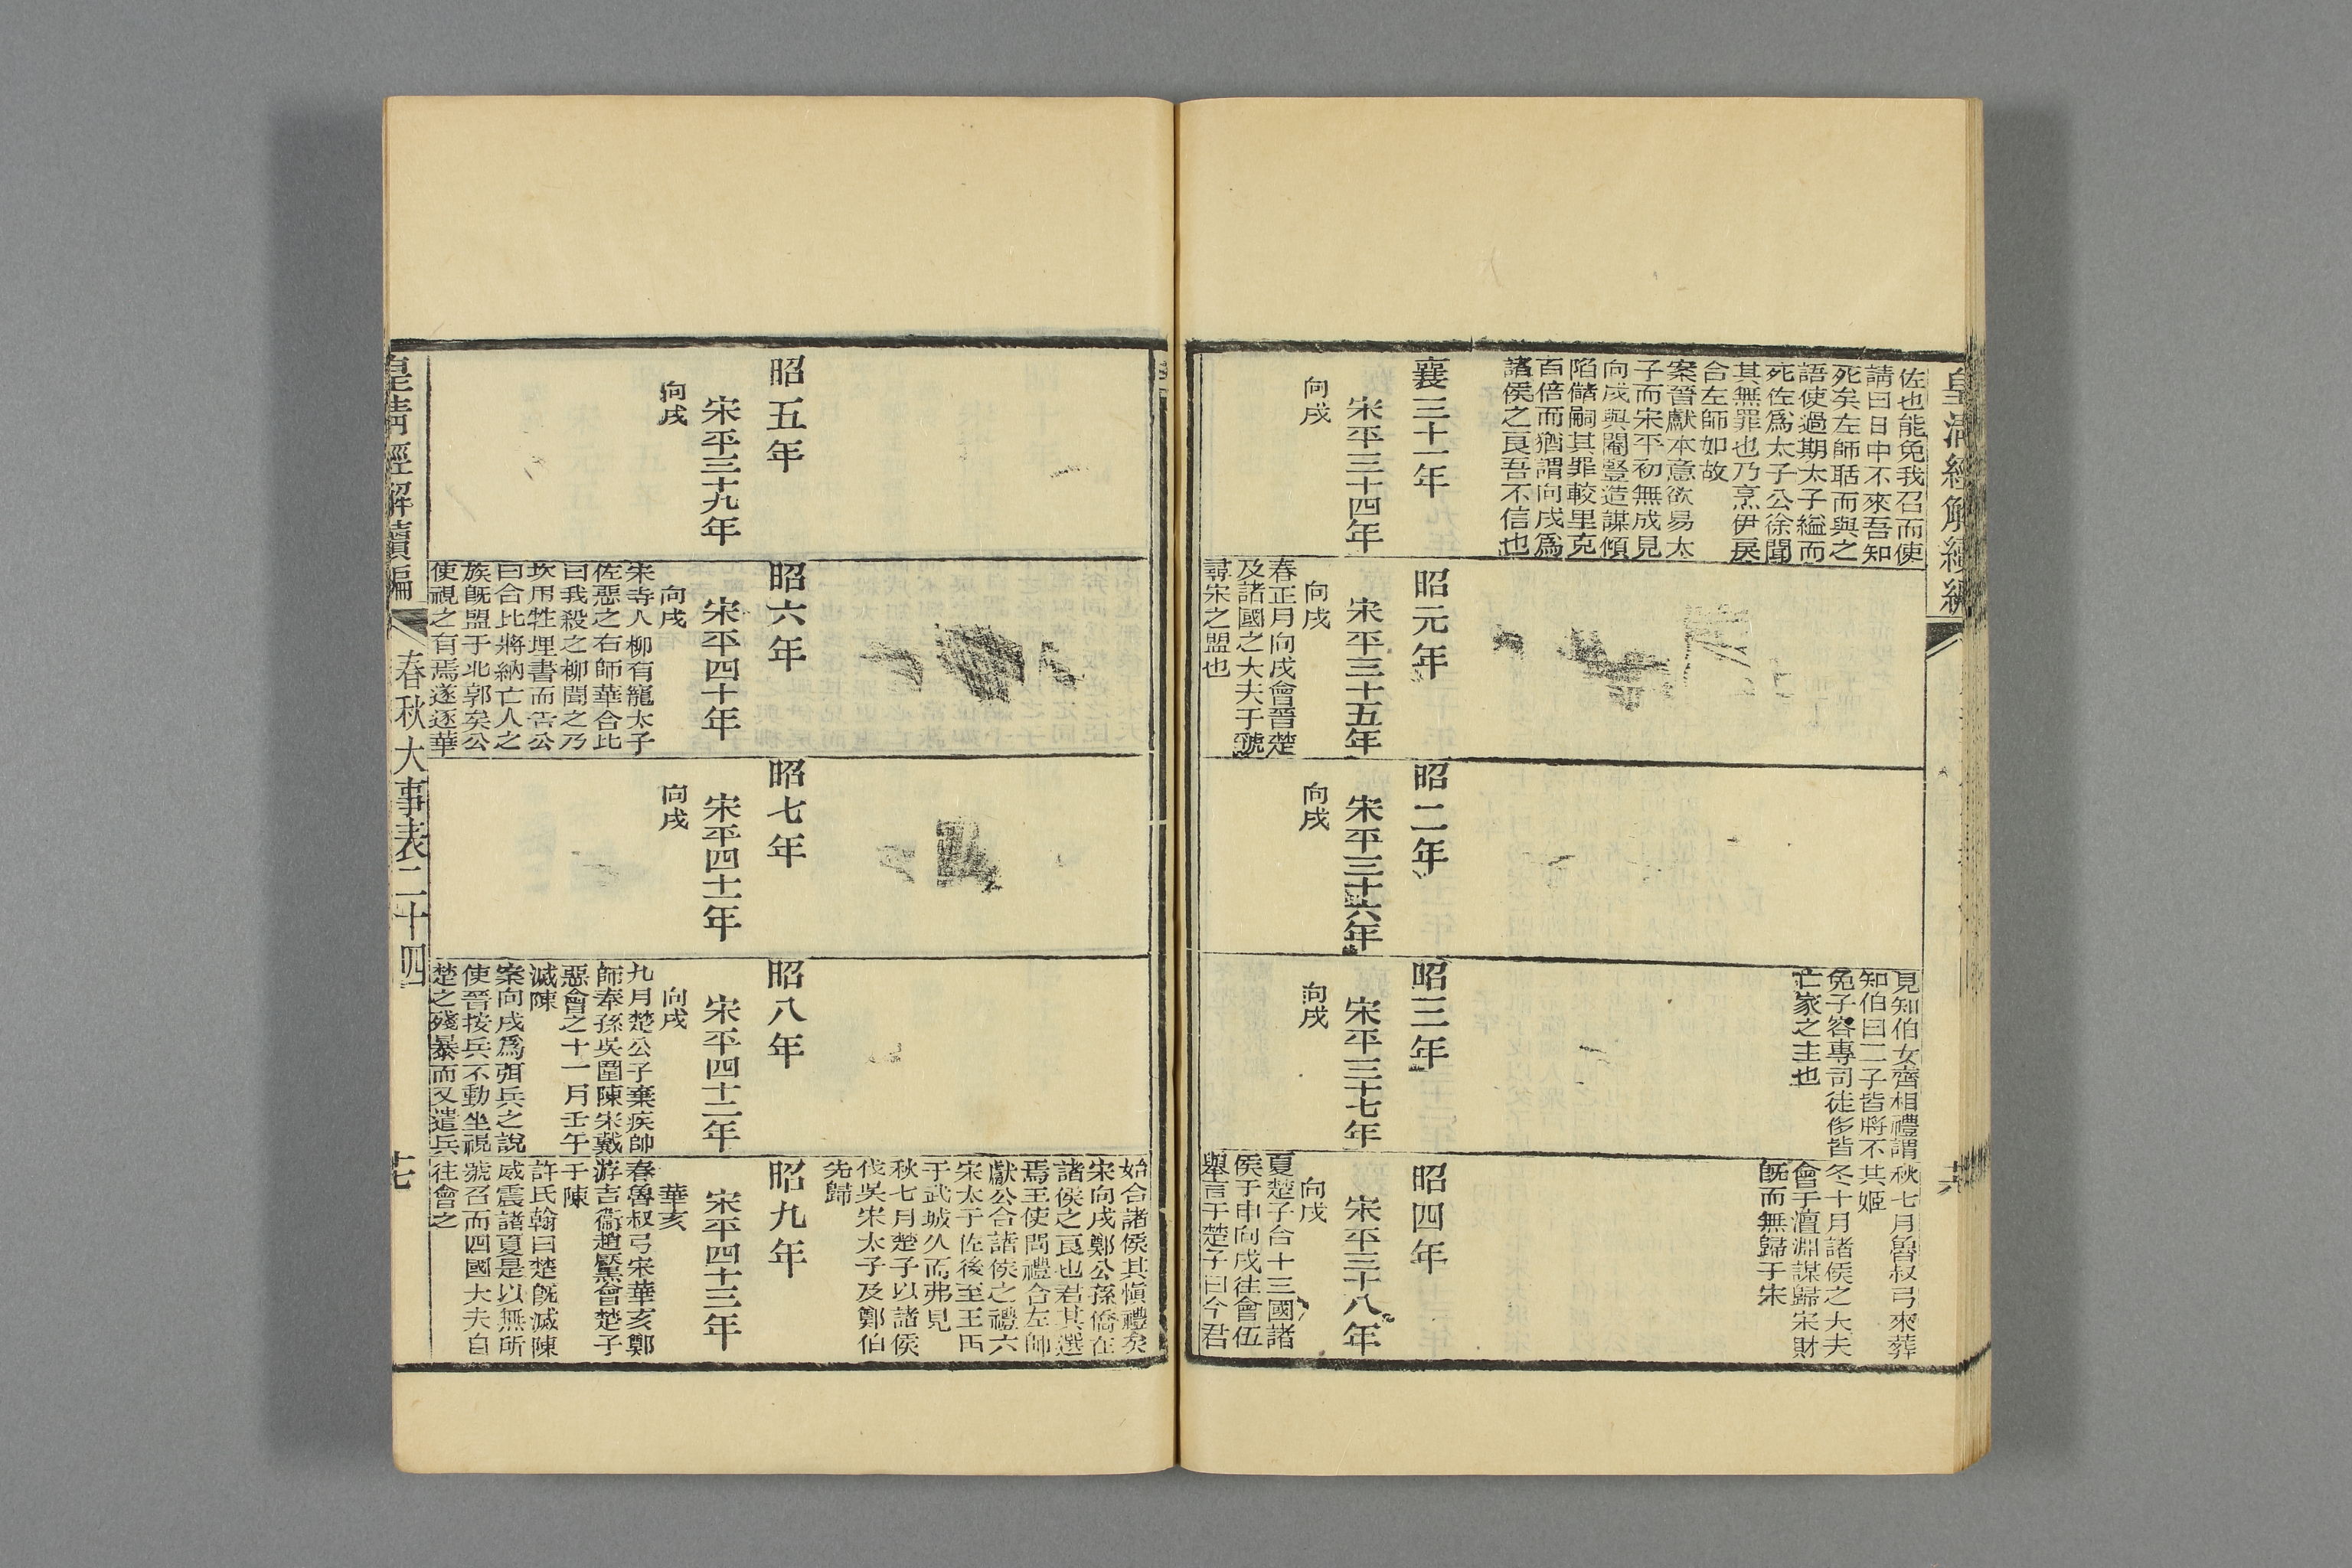 皇清經解續編
佐也能免我召而使
請曰日中不來吾知
死矣左師聒而與之
語使過期太子縊而
死佐爲太子公徐聞
其無罪也乃烹伊戾
合左師如故
案晉獻本意欲易太
子而宋平初無成見
向戌與閹豎造謀傾
陷儲嗣其罪較里克
百倍而猶謂向戌爲
諸侯之良吾不信也
襄三十一年
宋平三十四年
向戌
昭元年
宋平三十五年
向戌
春正月向戌會晉楚
及諸國之大夫于虢
尋宋之盟也
昭二年
宋平三十六年
向戌
見知伯女齊相禮謂
知伯曰二子皆將不
免子容專司徒侈皆
亡家之主也
昭三年
宋平三十七年
向戌
秋七月魯叔弓來葬
其姬
冬十月諸侯之大夫
會于澶淵謀歸宋財
旣而無歸于宋
昭四年
宋平三十八年
向戌
夏楚子合十三國諸
侯于申向戌往會伍
舉言于楚子曰今君
昭五年
宋平三十九年
向戌
昭六年
宋平四十年
向戌
宋寺人柳有寵太子
佐惡之右師華合比
曰我殺之柳聞之乃
坎用牲埋書而告公
曰合比將納亡人之
族旣盟于北郭矣公
使視之有焉遂逐華
昭七年
宋平四十一年
向戌
昭八年
宋平四十二年
向戌
九月楚公子棄疾帥
師奉孫吳圍陳宋戴
惡會之十一月壬午
滅陳
案向戌爲弭兵之說
使晉按兵不動坐視
楚之殘暴而又遣兵
始合諸侯其愼禮矣
宋向戌鄭公孫僑在
諸侯之良也君其選
焉王使問禮合左師
獻公合諸侯之禮六
宋太子佐後至王田
于武城久而弗見
秋七月楚子以諸侯
伐吳宋太子及鄭伯
先歸
昭九年
宋平四十三年
華亥
春魯叔弓宋華亥鄭
游吉衞趙黶會楚子
于陳
許氏翰曰楚旣滅陳
威震諸夏是以無所
號召而四國大夫自
往會之
皇清經解續編
春秋大事表二十四